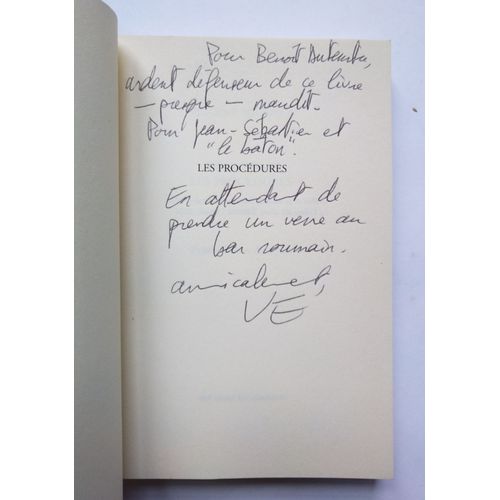 Pour Benoît
ardent défenseur de ce livre
– presque – maudit.
Pour Jean-Sébastien et
"le baton".
LES PROCÉDURES
En attendant de
prendre un verre au
bar roumain.
amicalement,
VE